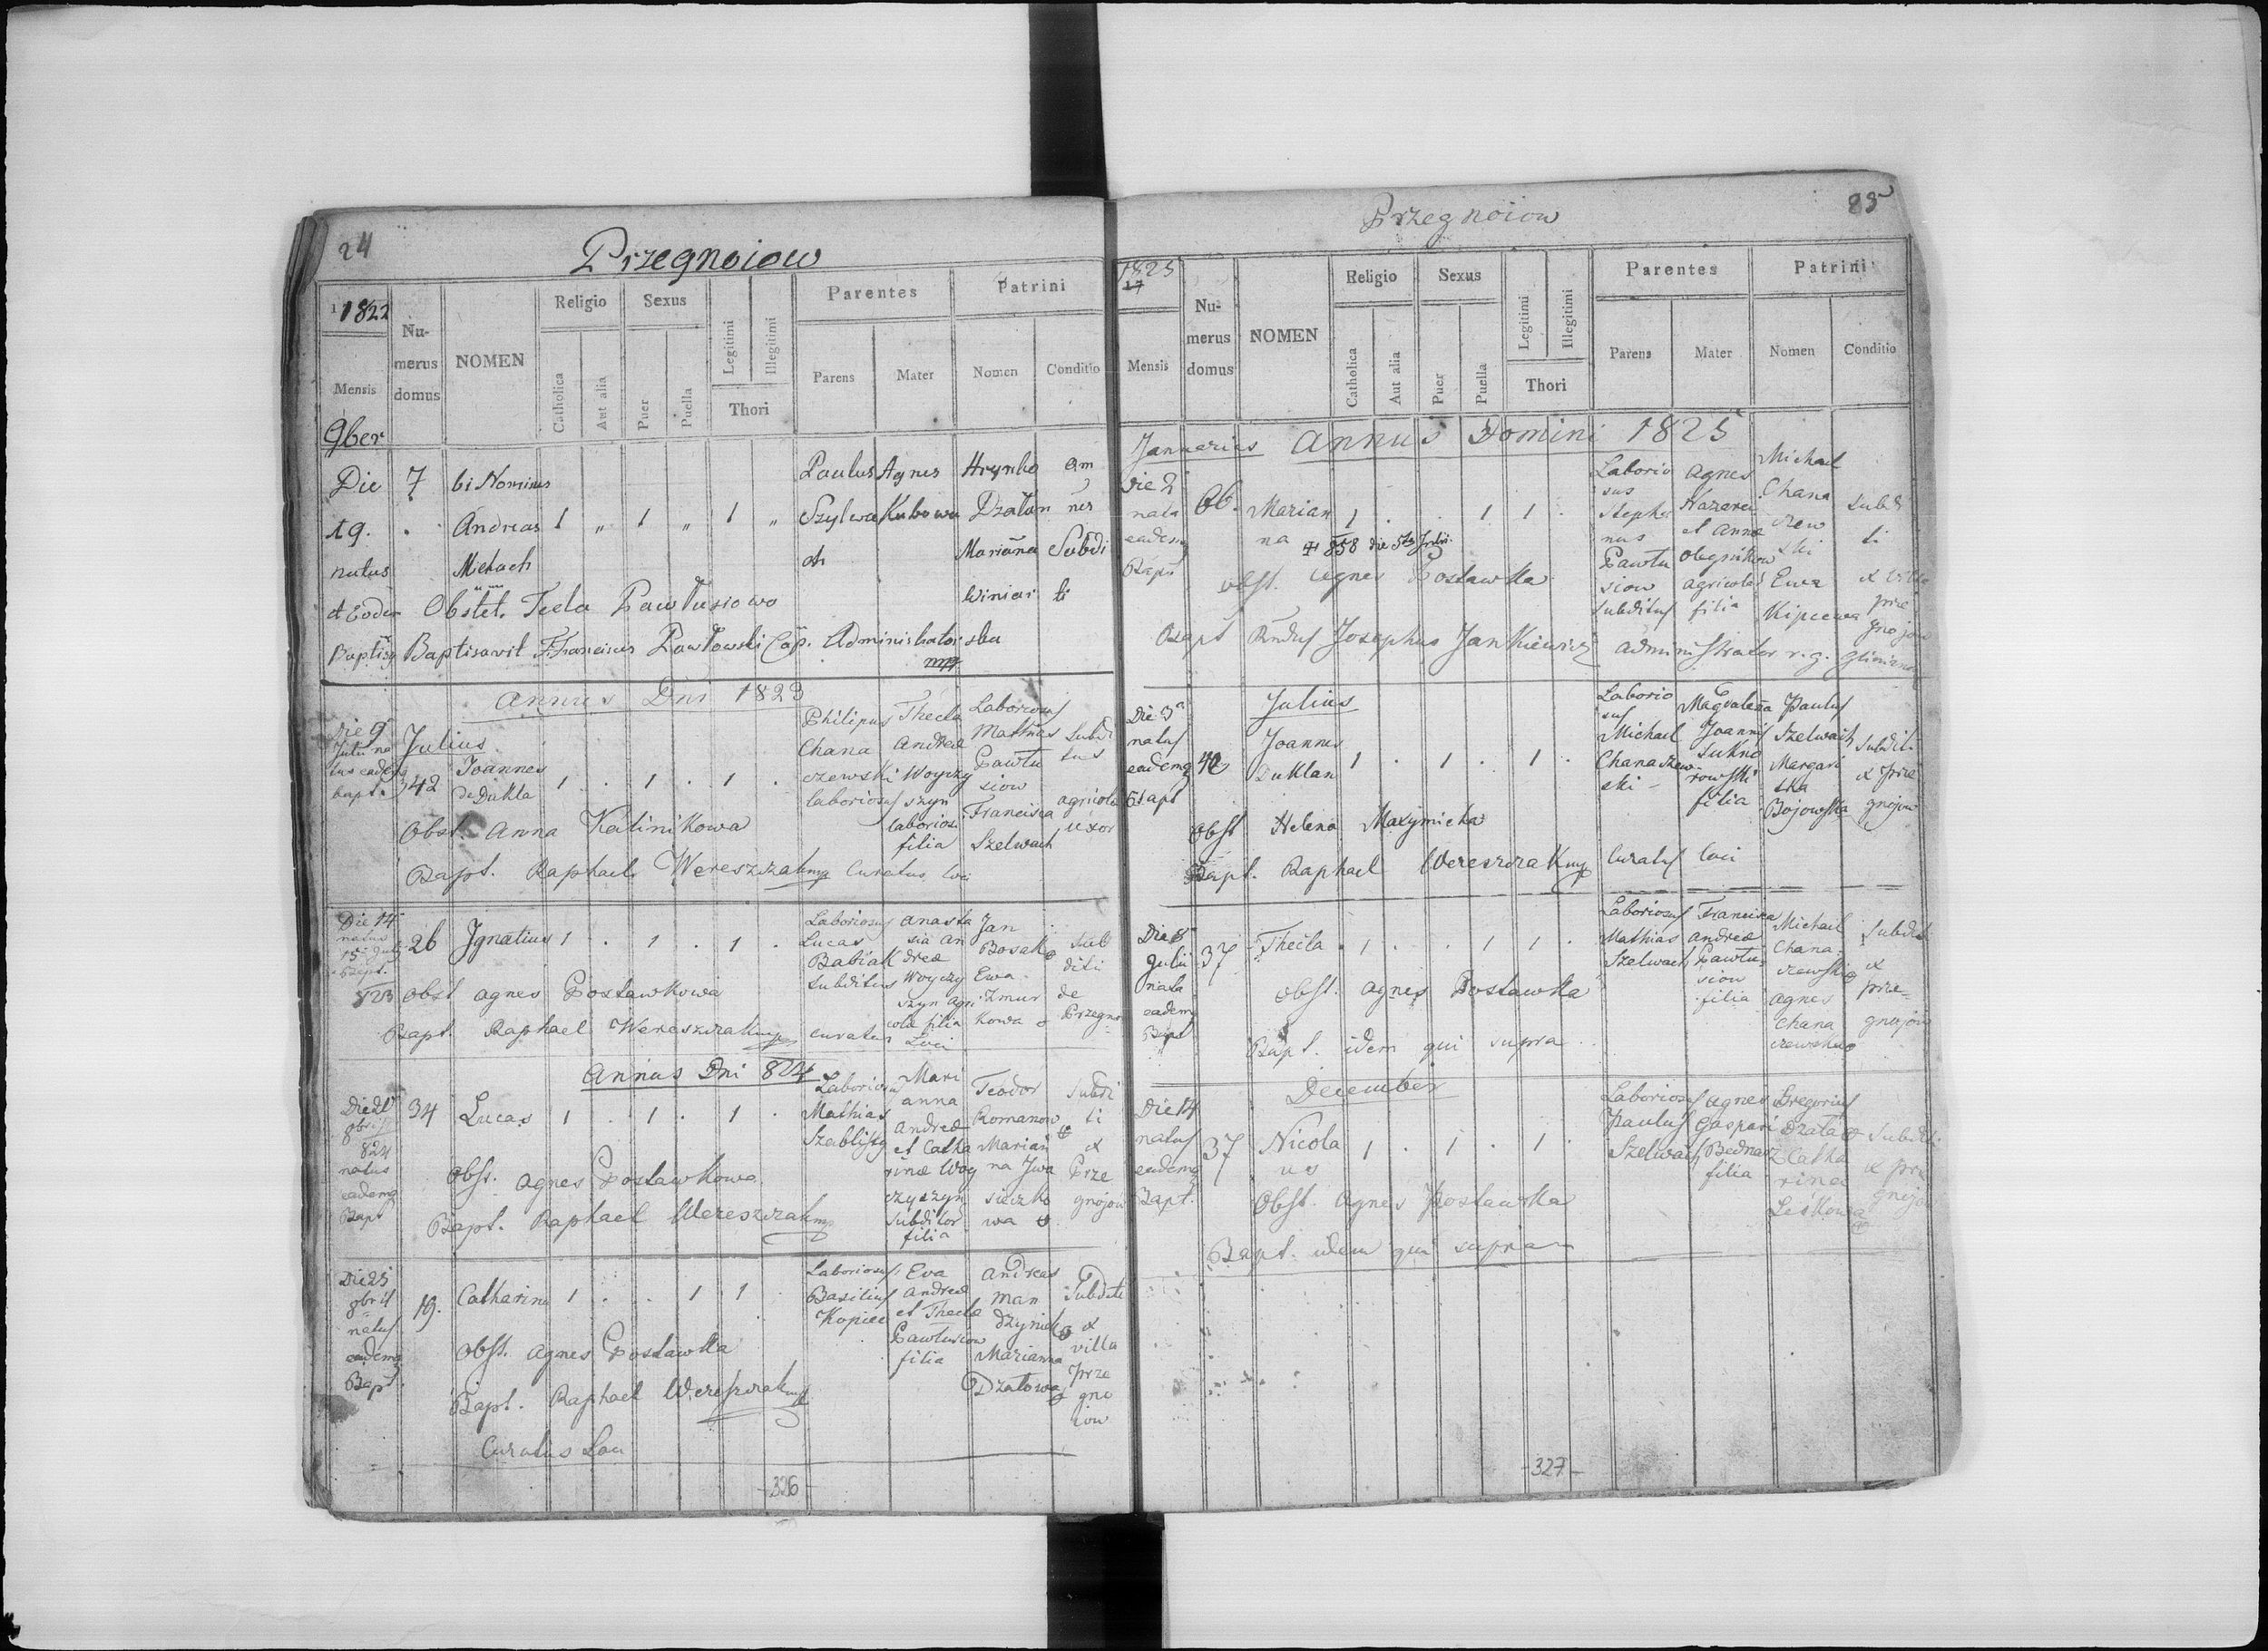 24
Przegnoiow
1822
Mensis
Numerus domus
NOMEN
Religio
Catholica
Aut alia
Sexus
Puer
Puella
Legitimi
Illegitimi
Thori
Parentes
Parens
Mater
Patrini
Nomen
Conditio
9ber
Die 7 bi Nominus Paulus Agnes Hrynko
19. Andreas 1 „ 1 „ 1 „ Szylwa Kubowa Dzatan
natus Michach ch Marianna Subdi
et Eodem Obstet. Tecla Pawlusiowo Winiar ti
Baptis Baptisavit F. Franciscus Pawlowski Cap. Administrator
mp
Annus Dni 1823
Die 9 Julii natus eadem bapt.
Julius
42 Joannes de Dukla 1 . 1 . 1 .
Philipus Chanaczewski laboriosus
Thecla Andreae Woyczyszyn laboriosi filia
Laboriosus Mathias Pawlusiow
Francisca Szelwach
Subditus
agricola uxor
Obst. Anna Kalinikowa
Bapt. Raphael Wereszczak mp Curatus loci
Die 14 natus 15
Bapt.
823
26 Ignatius 1 . 1 . 1 .
Laboriosus Lucas Babiak Subditus
Anastasia Andreae Woyczyszyn agricola filia
Jan Bosak
Ewa Zmurkowa
Subditi de Przegno
Obst Agnes Postawkowa
Bapt. Raphael Wereszczak mp Curatus Loci
Annus Dni 824
Die 21 9bris 824 natus eademq Bapt
34 Lucas 1 . 1 . 1 .
Laboriosus Mathias
Marianna Andreae et Catharinae Woyczyszyn Subditor filia
Teodor Romanow
Marianna Iwasieczkowa
Subditi ex Przegnojow
Obst. Agnes Postawkowa
Bapt. Raphael Wereszczak mp
Die 25 9bris natus eademq Bapt.
19. Catharina 1 . . 1 1 .
Laboriosus Basilius Kopiec
Eva Andreae et Theclae Pawlusiow filia
Andreas
Marianna Dzatowa
Subditi ex villa Przegnoiow
Obst. Agnes Postawka
Bapt. Raphael Wereszczak mp
Curatus Loci
-326-
Przegnoiow
1825
Mensis
Numerus domus
NOMEN
Religio
Catholica
Aut alia
Sexus
Puer
Puella
Legitimi
Illegitimi
Thori
Parentes
Parens
Mater
Patrini
Nomen
Conditio
Januarius Annus Domini 1825
Die 2 nata eademq Bapt
Marianna 1 . . 1 1 .
858 die 5ta Julii
Laboriosus Stephanus Pawlusiow subditus
Agnes et Anna agricola filia
Michael Chanaczewski
Ewa
Subditi ex villa Przegnojow
Obst. Agnes Postawka
Bapt Rndus Josephus Jankiewicz Administrator r. g.
Julius
Die 3a natus eademq Bapt
Joannes Duklan 1 . 1 . 1 .
Laboriosus Michael Chanaszewski
Magdalena Joannis filia
Paulus Szelwach
Subditi ex Przegnojow
Obst Helena Maxymicha
Bapt. Raphael Wereszczak mp Curatus loci
Die 8 Julii nata eademq Bapt
37 Thecla 1 . . 1 1 .
Laboriosus Mathias Szelwach
Francisca Andreae Pawlusiow filia
Michael Chanaczewski
Agnes Chanaczewska
Subditi ex Przegnojow
Obst. Agnes Postawka
Bapt. idem qui supra
December
Die 14 natus eademq Bapt.
37 Nicolaus 1 . 1 . 1 .
Laboriosus Paulus Szelwach
Agnes Gaspari Bednarz filia
Gregorius Dzata
Catharina Leskowa
Subditi ex Przegnojow
Obst. Agnes Postawka
Bapt. idem qui supra
-327-